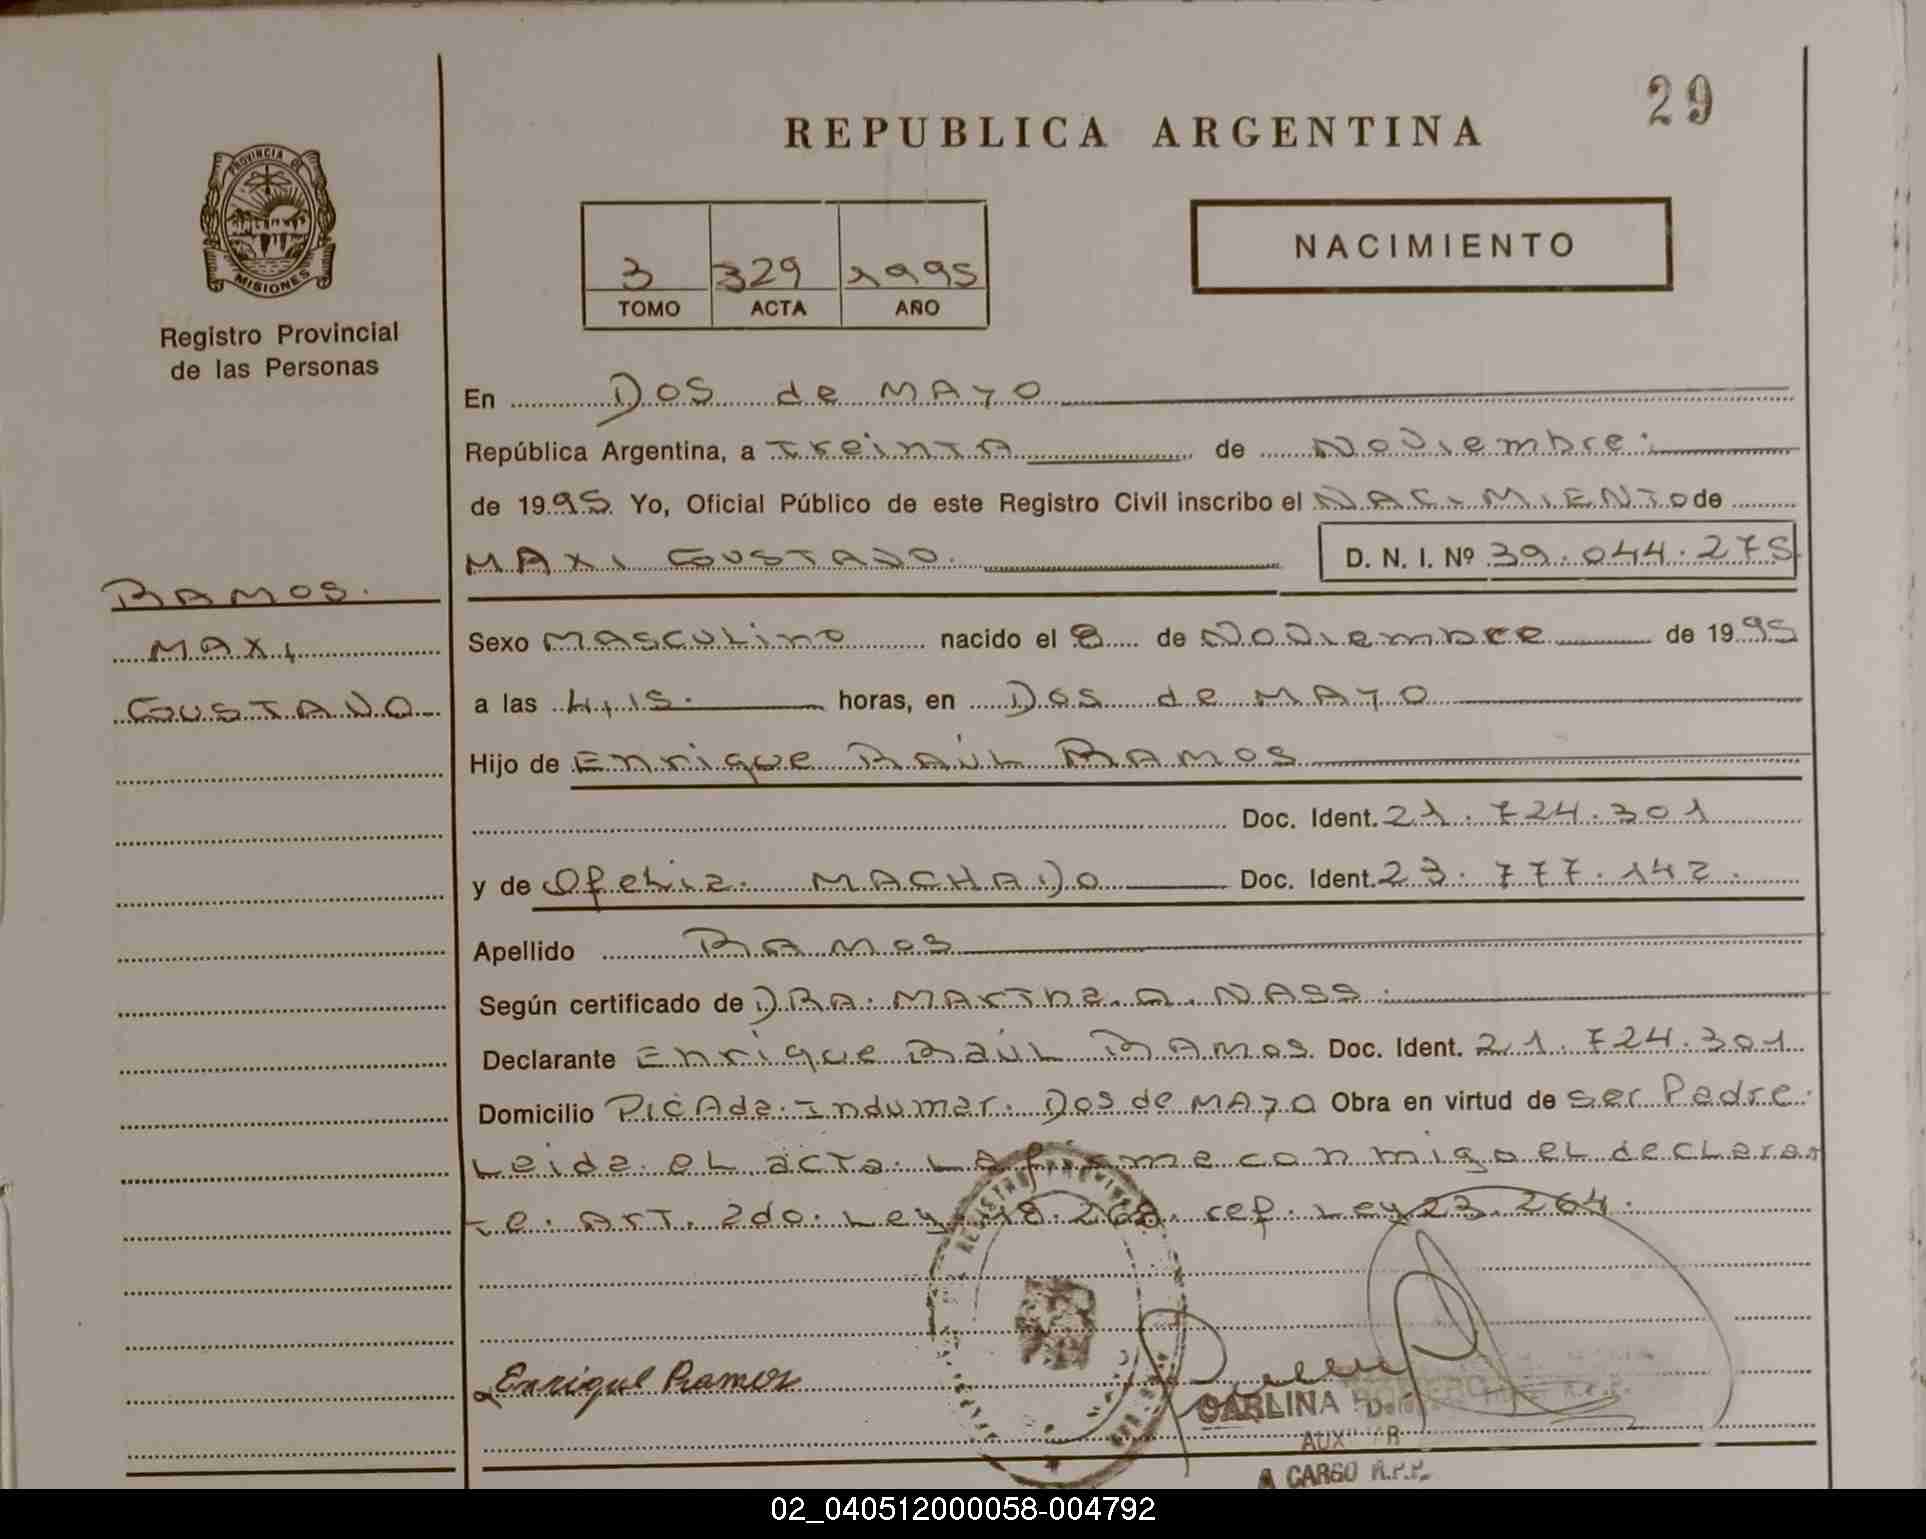 29
REPUBLICA ARGENTINA
PROVINCIA DE
MISIONES
Registro Provincial
de las Personas
3 329 1995
TOMO ACTA AÑO
NACIMIENTO
En Dos de MAYO
República Argentina, a TreinTA de Noviembre.
de 1995 Yo, Oficial Público de este Registro Civil inscribo el NACIMIENTO de
MAXI GUSTAVO. D. N. I. Nº 39.044.275
RAMOS.
MAXI
GUSTAVO
Sexo MASCULino nacido el 8 de Noviembre de 1995
a las 4,15. horas, en Dos de MAYO
Hijo de Enrique RAÚL RAMOS
Doc. Ident. 21.724.301
y de OfeLia. MACHADO Doc. Ident. 23.777.142.
Apellido RAMOS
Según certificado de DRA. MArTha. NASS.
Declarante Enrique RaÚL RAMOS. Doc. Ident. 21.724.301
Domicilio PICAda. Indumar. Dos de MAYO Obra en virtud de ser Padre.
Leida eL acTa. LA firme conmigo eL decLaran
Te. ArT. 2do. Ley 18.268. ref. Ley 23.264.
REGISTRO PROVINCIAL
Enrique Ramos
CARLINA ROMERO
AUXILIAR
A CARGO R.P.P.
02_040512000058-004792